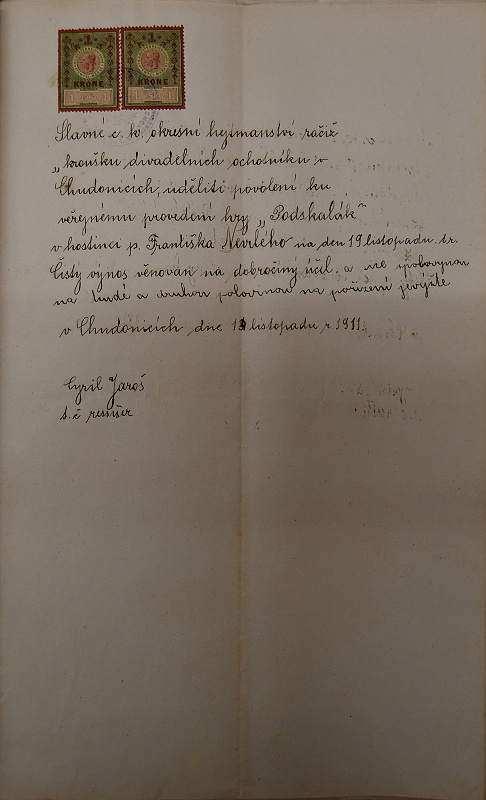 1 1
KRONE KRONE
1 1 1 1
Slavné c. k. okresní hejtmanství račiž
„kroužku divadelních ochotníku v
Chudonicích, uděliti povolení ku
veřejnému provedení hry „Podskalák“
v hostinci p. Františka Nevrlého na den 19 listopadu. t. r.
Čistý výnos věnován na dobročiný účel, a
na chudé a druhou polovinou na pořízení jeviště
v Chudonicích dne 13 listopadu r. 1911.
Cyril Jaroš
t. č. ressiser